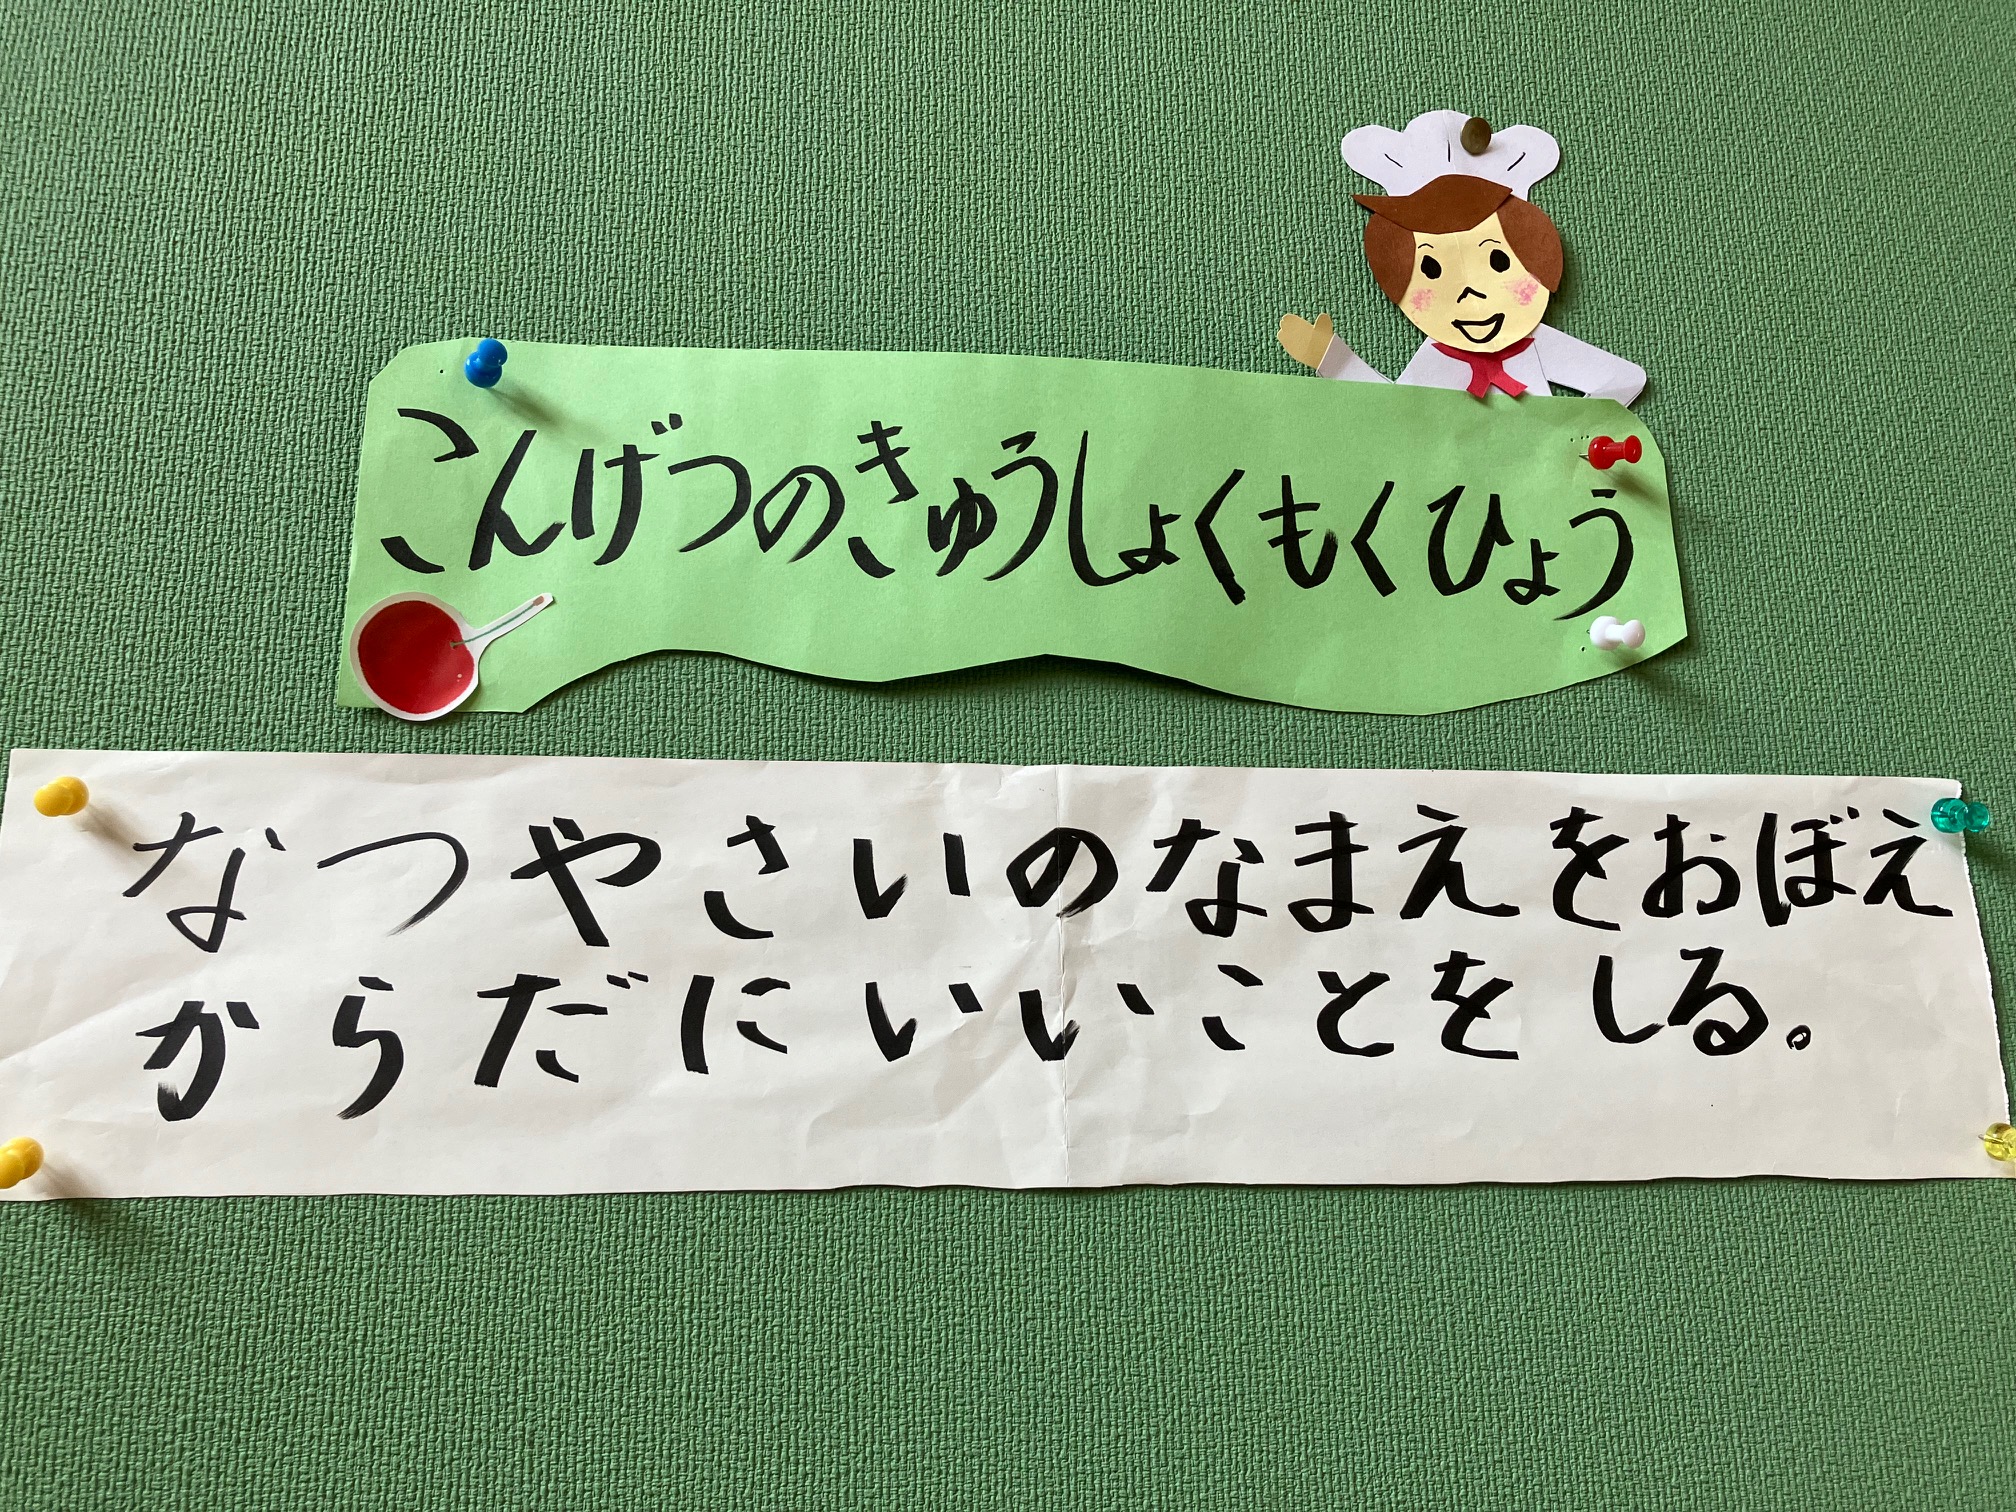 こんげつのきゅうしょくもくひょう
なつやさいのなまえをおぼえ
からだにいいことをしる。